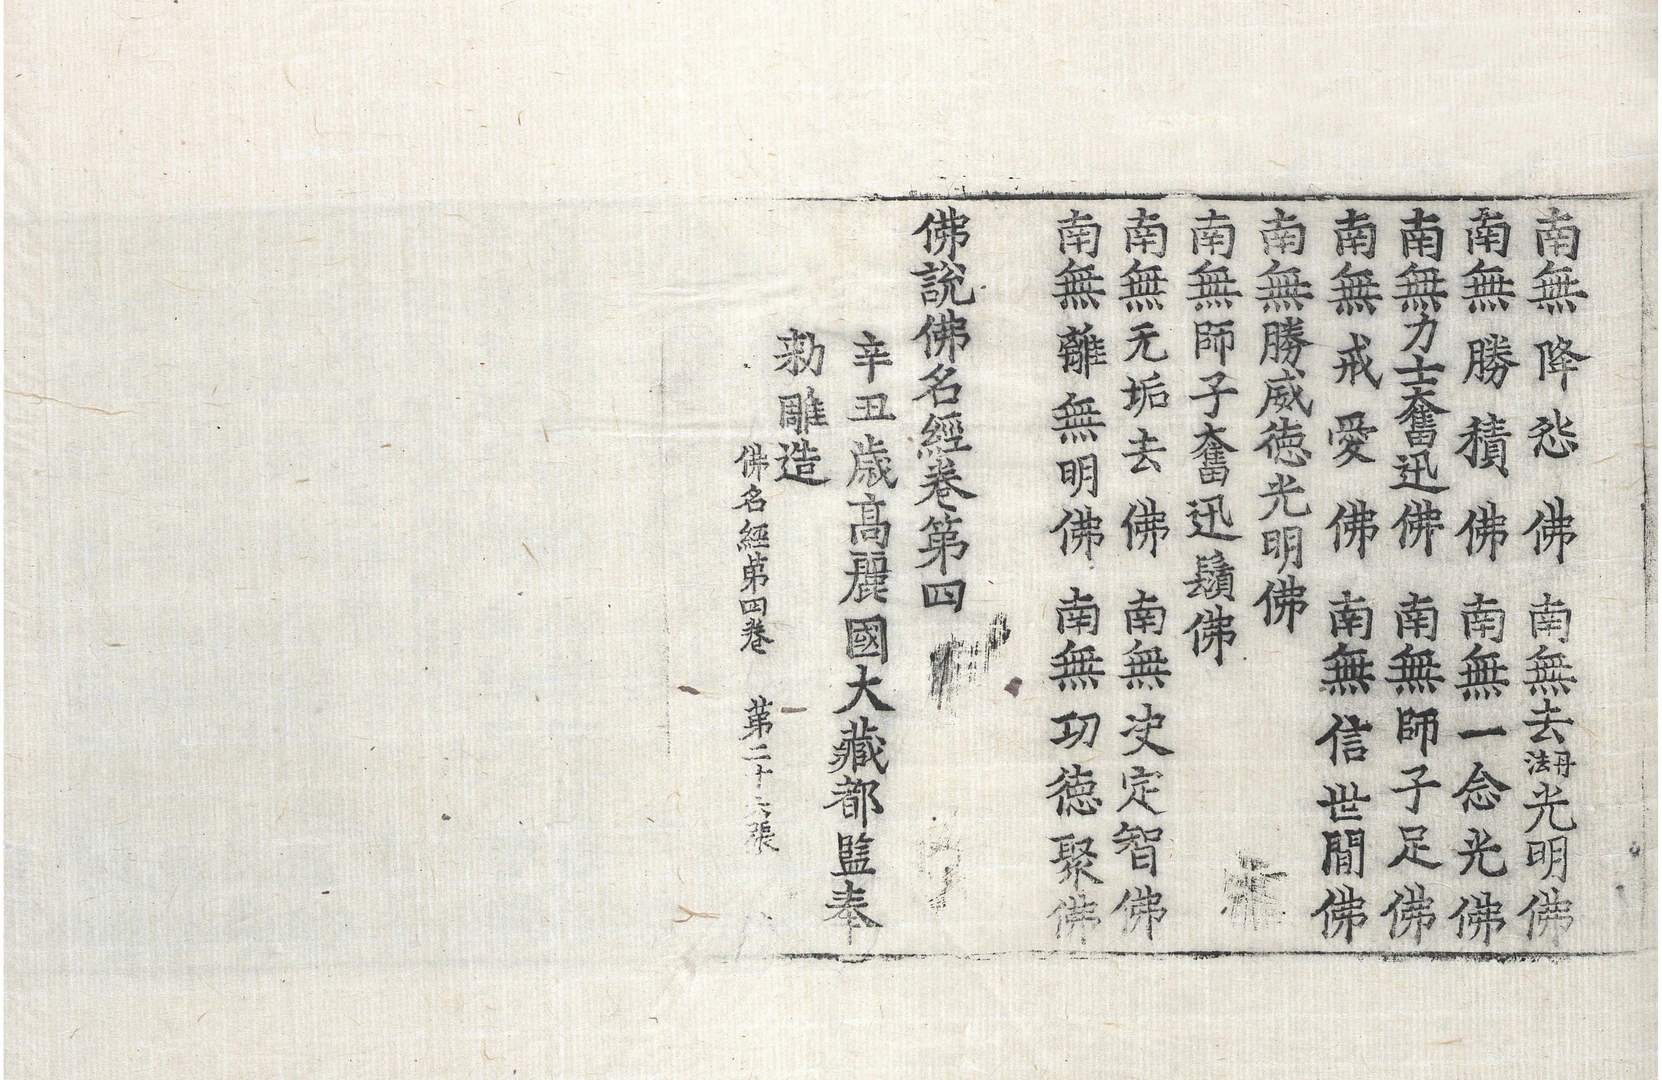 南無降愁佛 南無去丹法光明佛
南無勝積佛 南無一念光佛
南無力士奮迅佛 南無師子足佛
南無戒愛佛 南無信世間佛
南無勝威徳光明佛
南無師子奮迅鬚佛
南無无垢去佛 南無决定智佛
南無離無明佛 南無功徳聚佛
佛說佛名經卷第四
辛丑歲高麗國大藏都監奉
勅雕造
佛名經第四卷 第二十六張